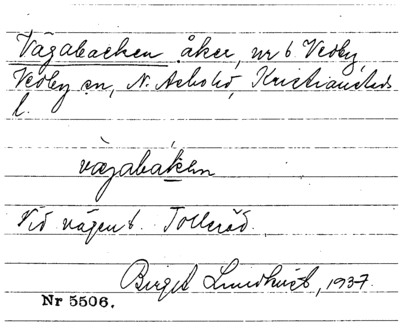 Vägabacken åker, nr 6 Vedby,
Vedby sn, N. Åsbo hd, Kristianstads
l.
vägabákən
Vid vägen t. Tollaröd.
Birgit Lundkvist, 1937.
Nr 5506.